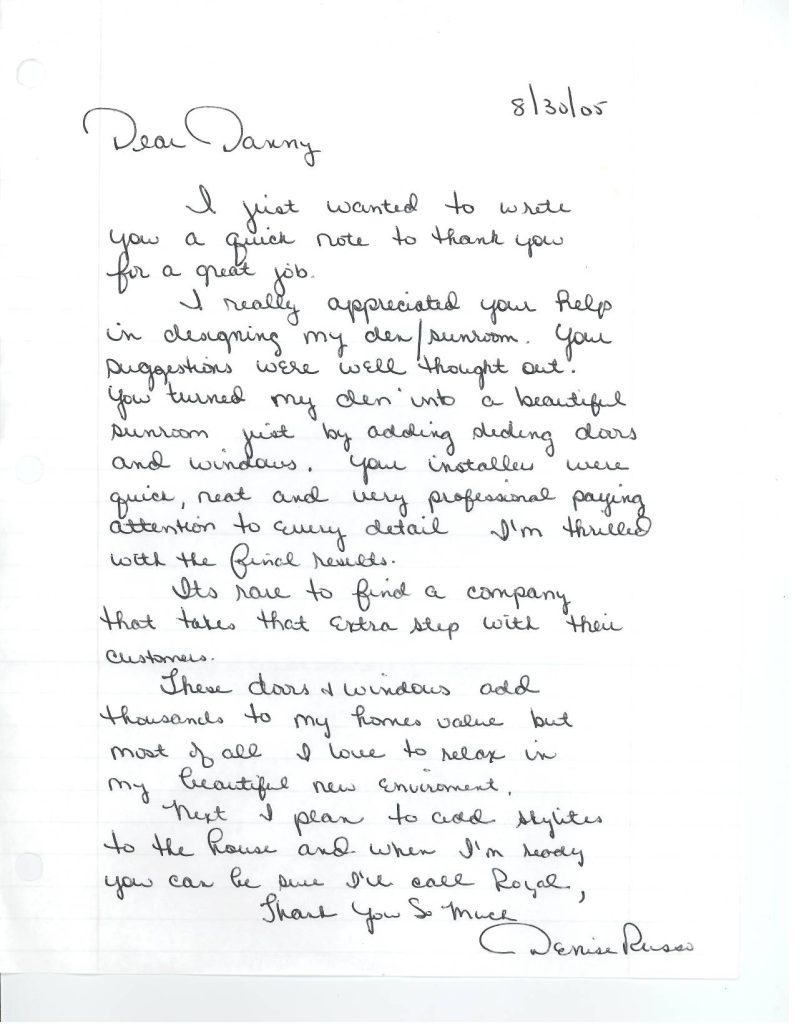 8/30/05
Dear Danny
I just wanted to write
you a quick note to thank you
for a great job.
I really appreciated your help
in designing my den/sunroom. Your
suggestions were well thought out.
You turned my den into a beautiful
sunroom just by adding sliding doors
and windows. Your installer were
quick, neat and very professional paying
attention to every detail I'm thrilled
with the final results.
Its rare to find a company
that takes that extra step with their
customers.
These doors & windows add
thousands to my homes value but
most of all I love to relax in
my beautiful new enviroment.
Next I plan to add skylites
to the house and when I'm ready
you can be sure I'll call Royal,
Thank You So Much
Denise Russo